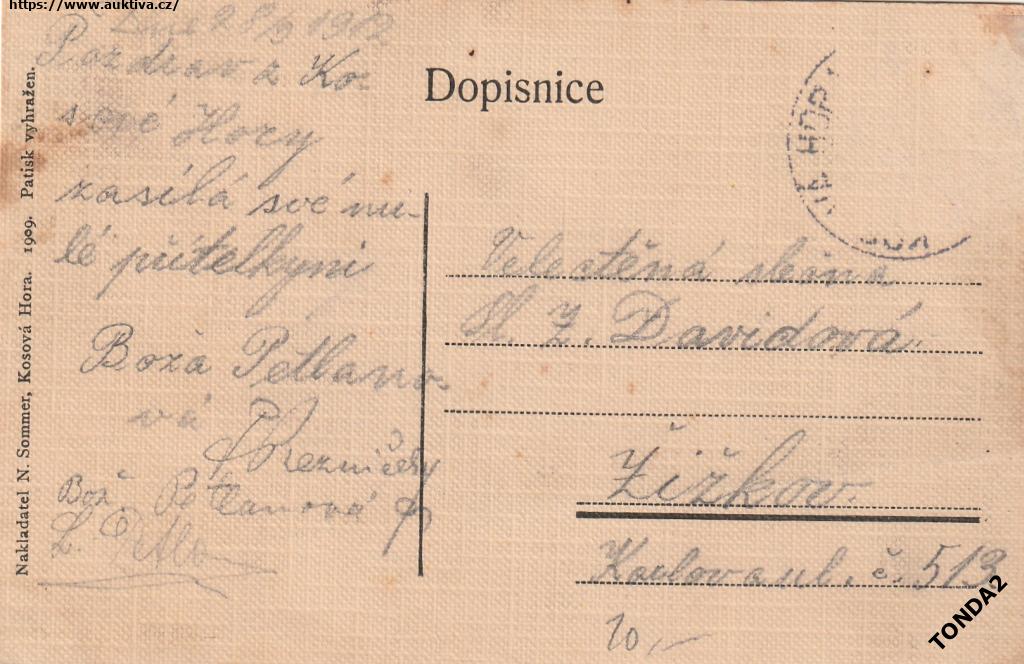 https://www.auktiva.cz/
28/9 1912
Pozdrav z Ko-
sové Hory
zasílá své mi-
lé přítelkyni
Boža Petlano-
vá
Bož. Petlanová
L. Petlo
Nakladatel N. Sommer, Kosová Hora. 1909. Patisk vyhražen.
Dopisnice
Velectěná slečna
Z. Davidová
Žižkov.
Karlova ul. č. 513
10,-
TONDA2